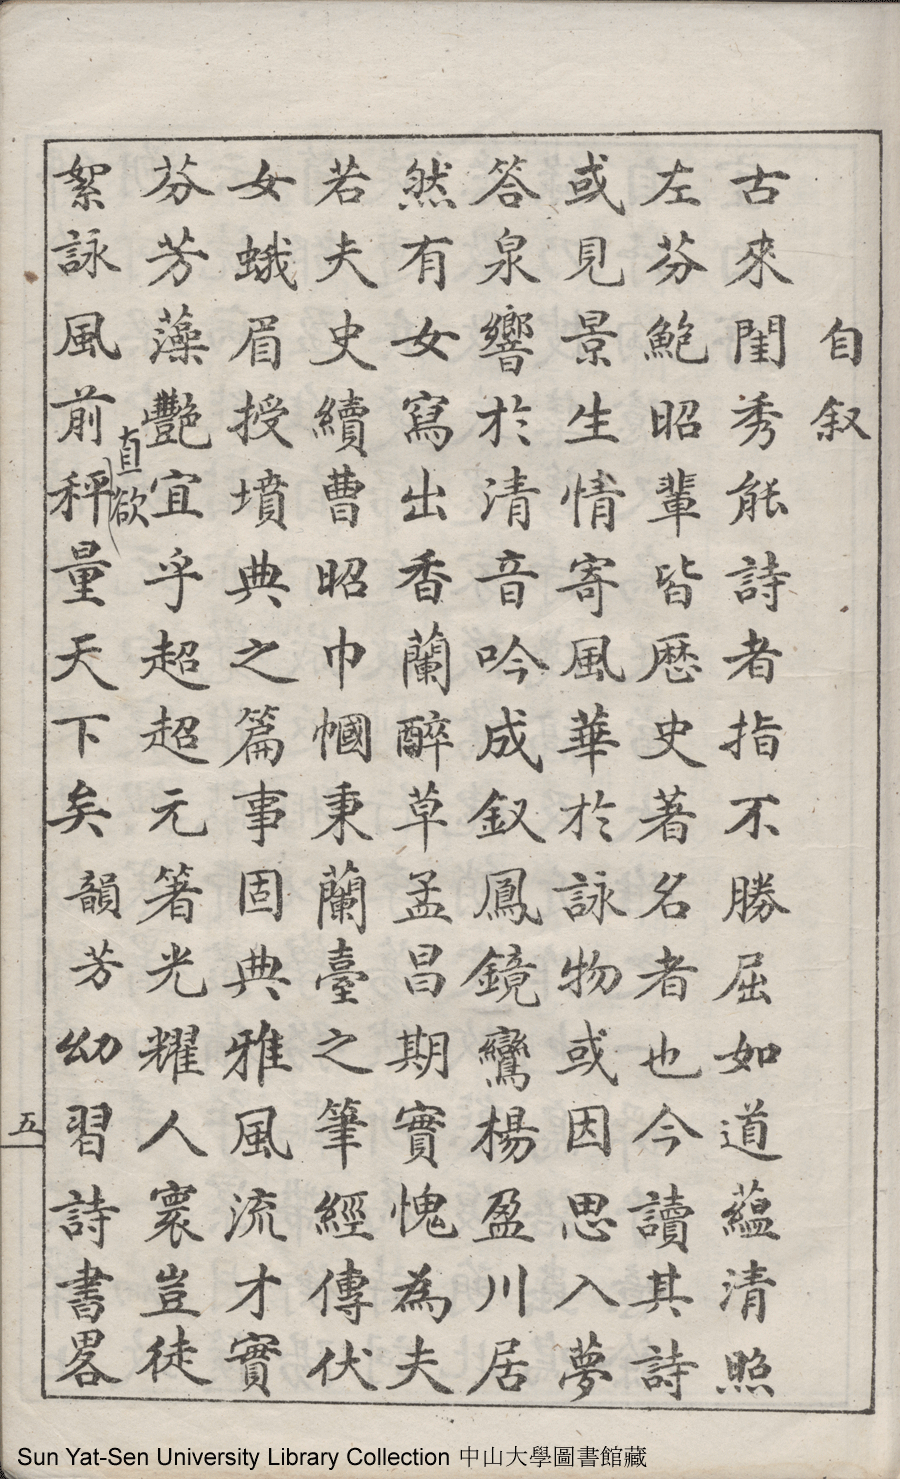 自叙
古來閨秀能詩者指不勝屈如道蘊清照
左芬鮑昭輩皆歷史著名者也今讀其詩
或見景生情寄風華於詠物或因思入夢
答泉響於清音吟成釵鳳鏡鸞楊盈川居
然有女寫出香蘭醉草孟昌期實愧為夫
若夫史續曹昭巾幗秉蘭臺之筆經傳伏
女蛾眉授墳典之篇事固典雅風流才實
芬芳藻艷宜乎超超元箸光耀人寰豈徒
直欲
絮詠風前秤量天下矣韻芳幼習詩書畧
五
Sun Yat-Sen University Library Collection 中山大學圖書館藏